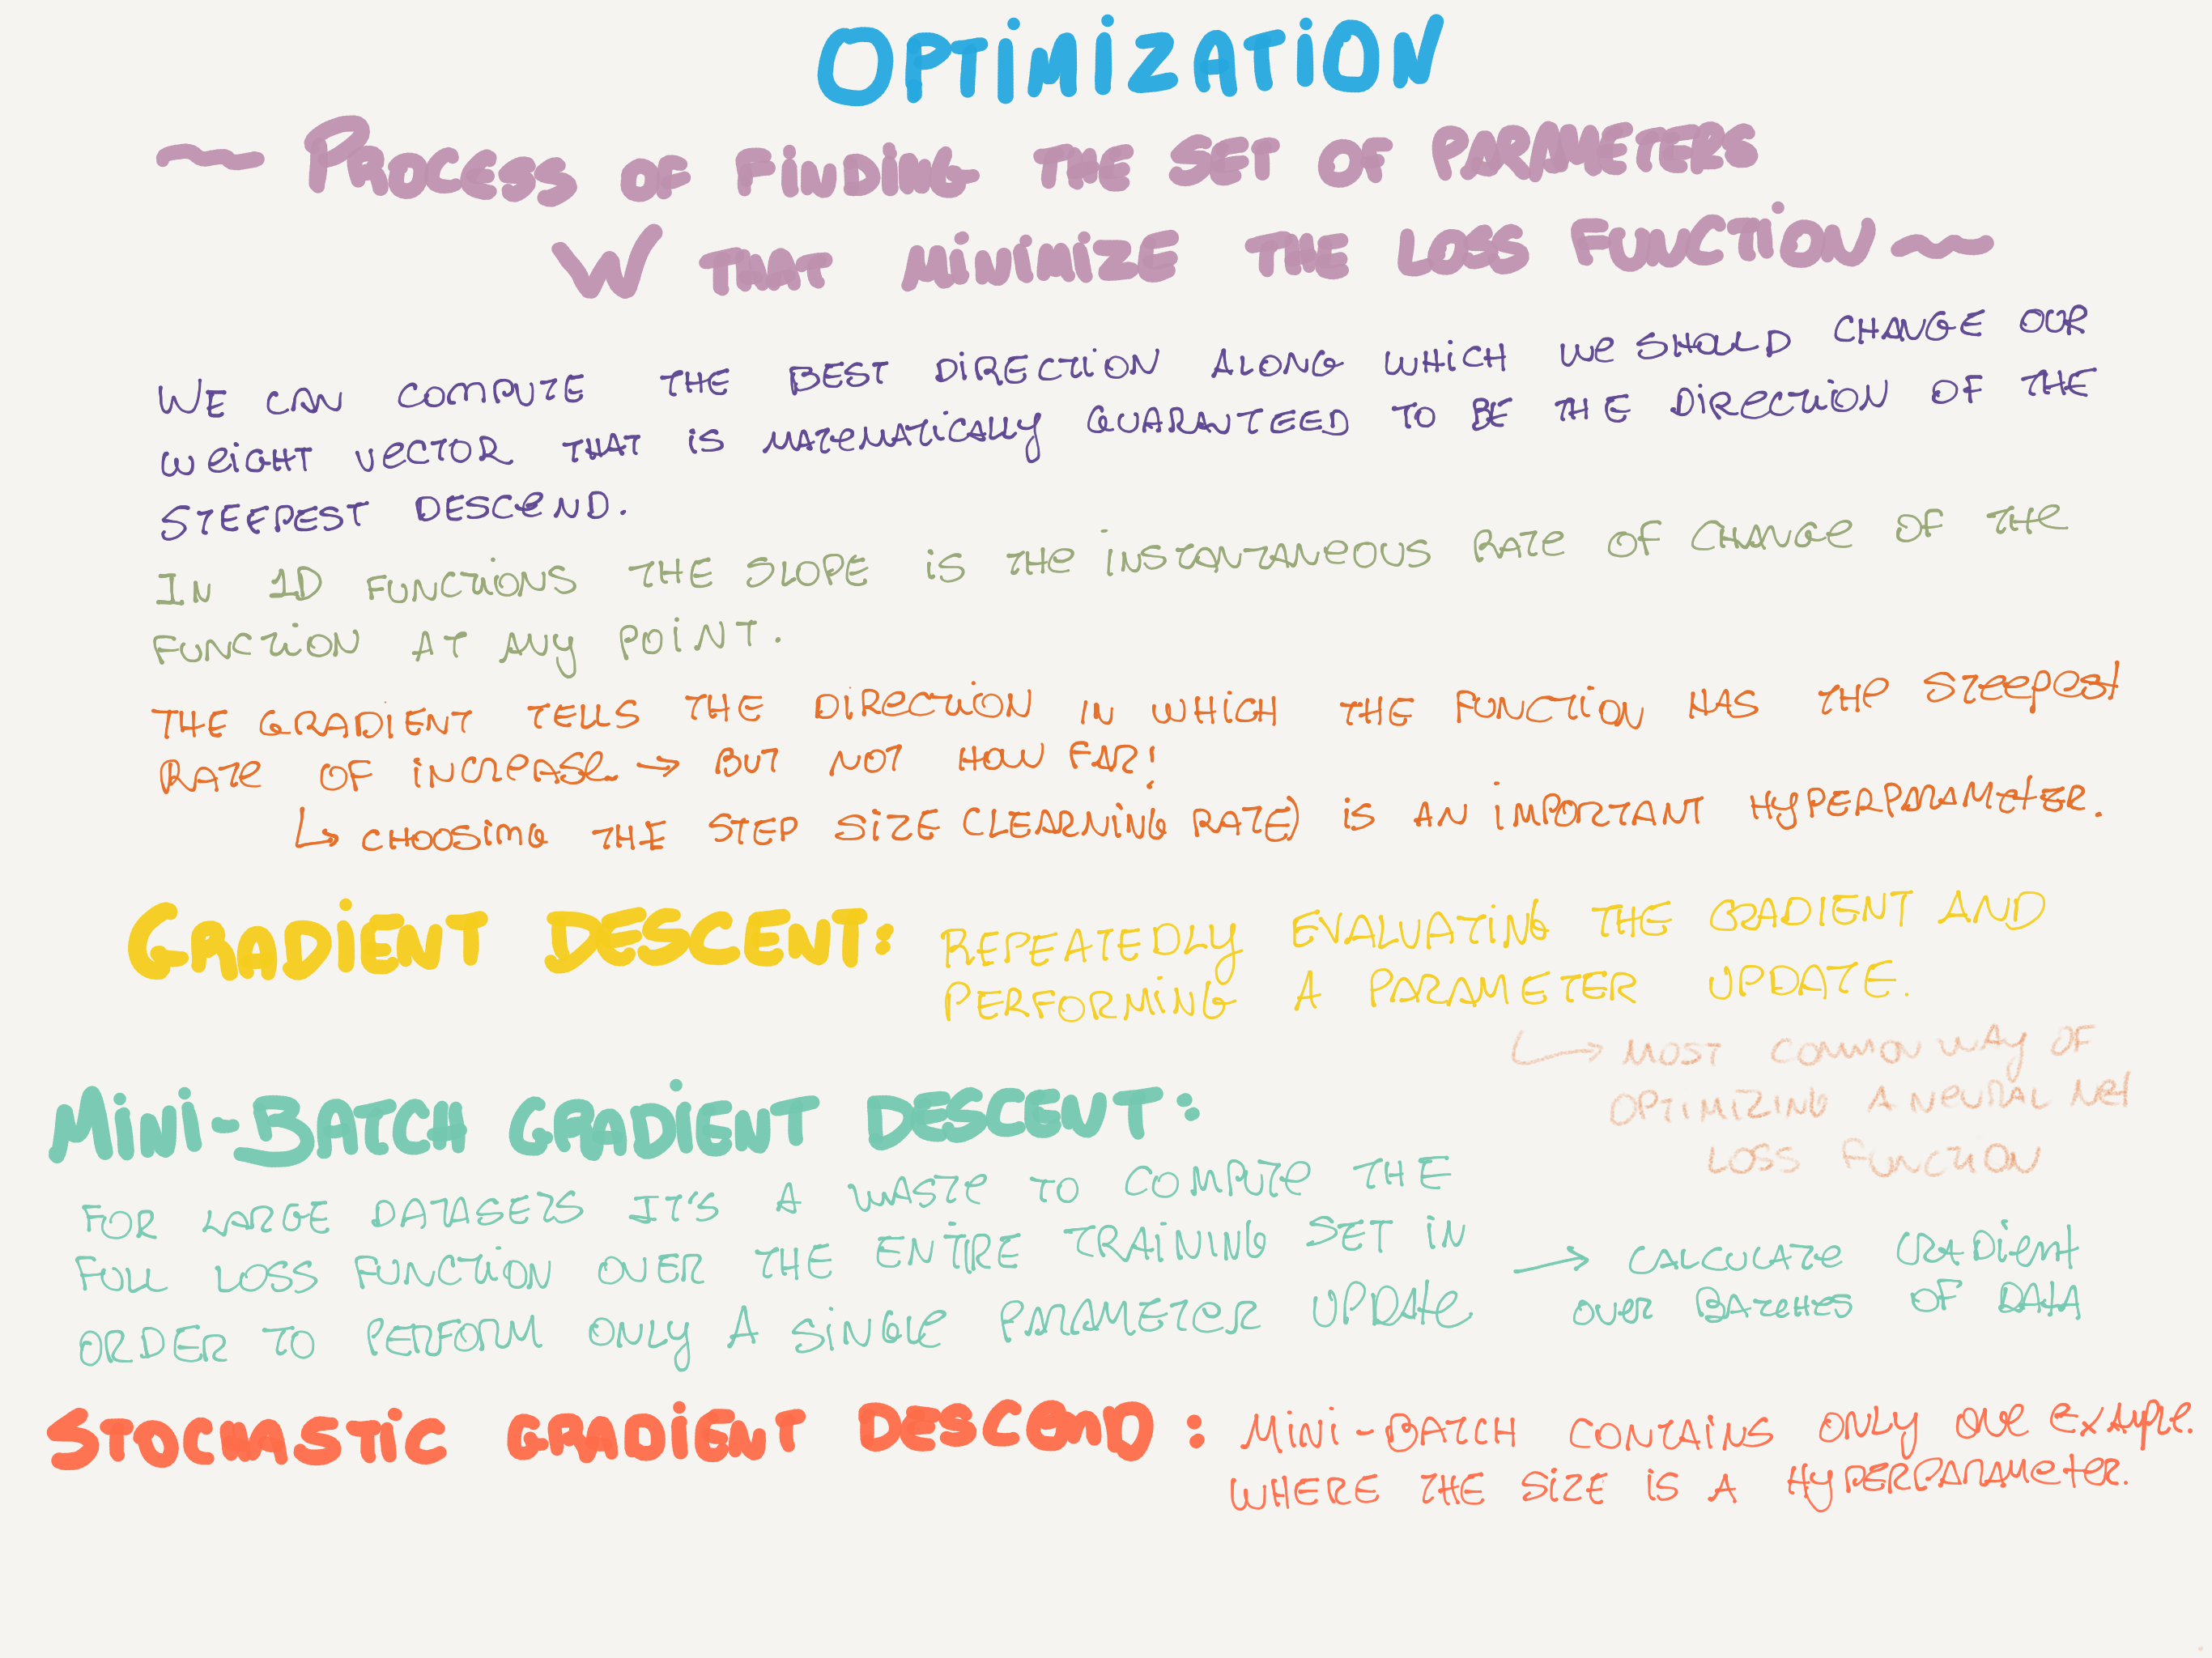 OPTIMIZATION
~ PROCESS OF FINDING THE SET OF PARAMETERS
W THAT MINIMIZE THE LOSS FUNCTION ~
WE CAN COMPUTE THE BEST DIRECTION ALONG WHICH WE SHOULD CHANGE OUR
WEIGHT VECTOR THAT IS MATEMATICALLY GUARANTEED TO BE THE DIRECTION OF THE
STEEPEST DESCEND.
IN 1D FUNCTIONS THE SLOPE IS THE INSTANTANEOUS RATE OF CHANGE OF THE
FUNCTION AT ANY POINT.
THE GRADIENT TELLS THE DIRECTION IN WHICH THE FUNCTION HAS THE STEEPEST
RATE OF INCREASE → BUT NOT HOW FAR!
↳ CHOOSING THE STEP SIZE (LEARNING RATE) IS AN IMPORTANT HYPERPARAMETER.
GRADIENT DESCENT: REPEATEDLY EVALUATING THE GRADIENT AND
PERFORMING A PARAMETER UPDATE.
↳ MOST COMMON WAY OF
OPTIMIZING A NEURAL NET
LOSS FUNCTION
MINI-BATCH GRADIENT DESCENT:
FOR LARGE DATASETS IT'S A WASTE TO COMPUTE THE
FULL LOSS FUNCTION OVER THE ENTIRE TRAINING SET IN
ORDER TO PERFORM ONLY A SINGLE PARAMETER UPDATE
→ CALCULATE GRADIENT
OVER BATCHES OF DATA
STOCHASTIC GRADIENT DESCEND: MINI-BATCH CONTAINS ONLY ONE EXAMPLE.
WHERE THE SIZE IS A HYPERPARAMETER.